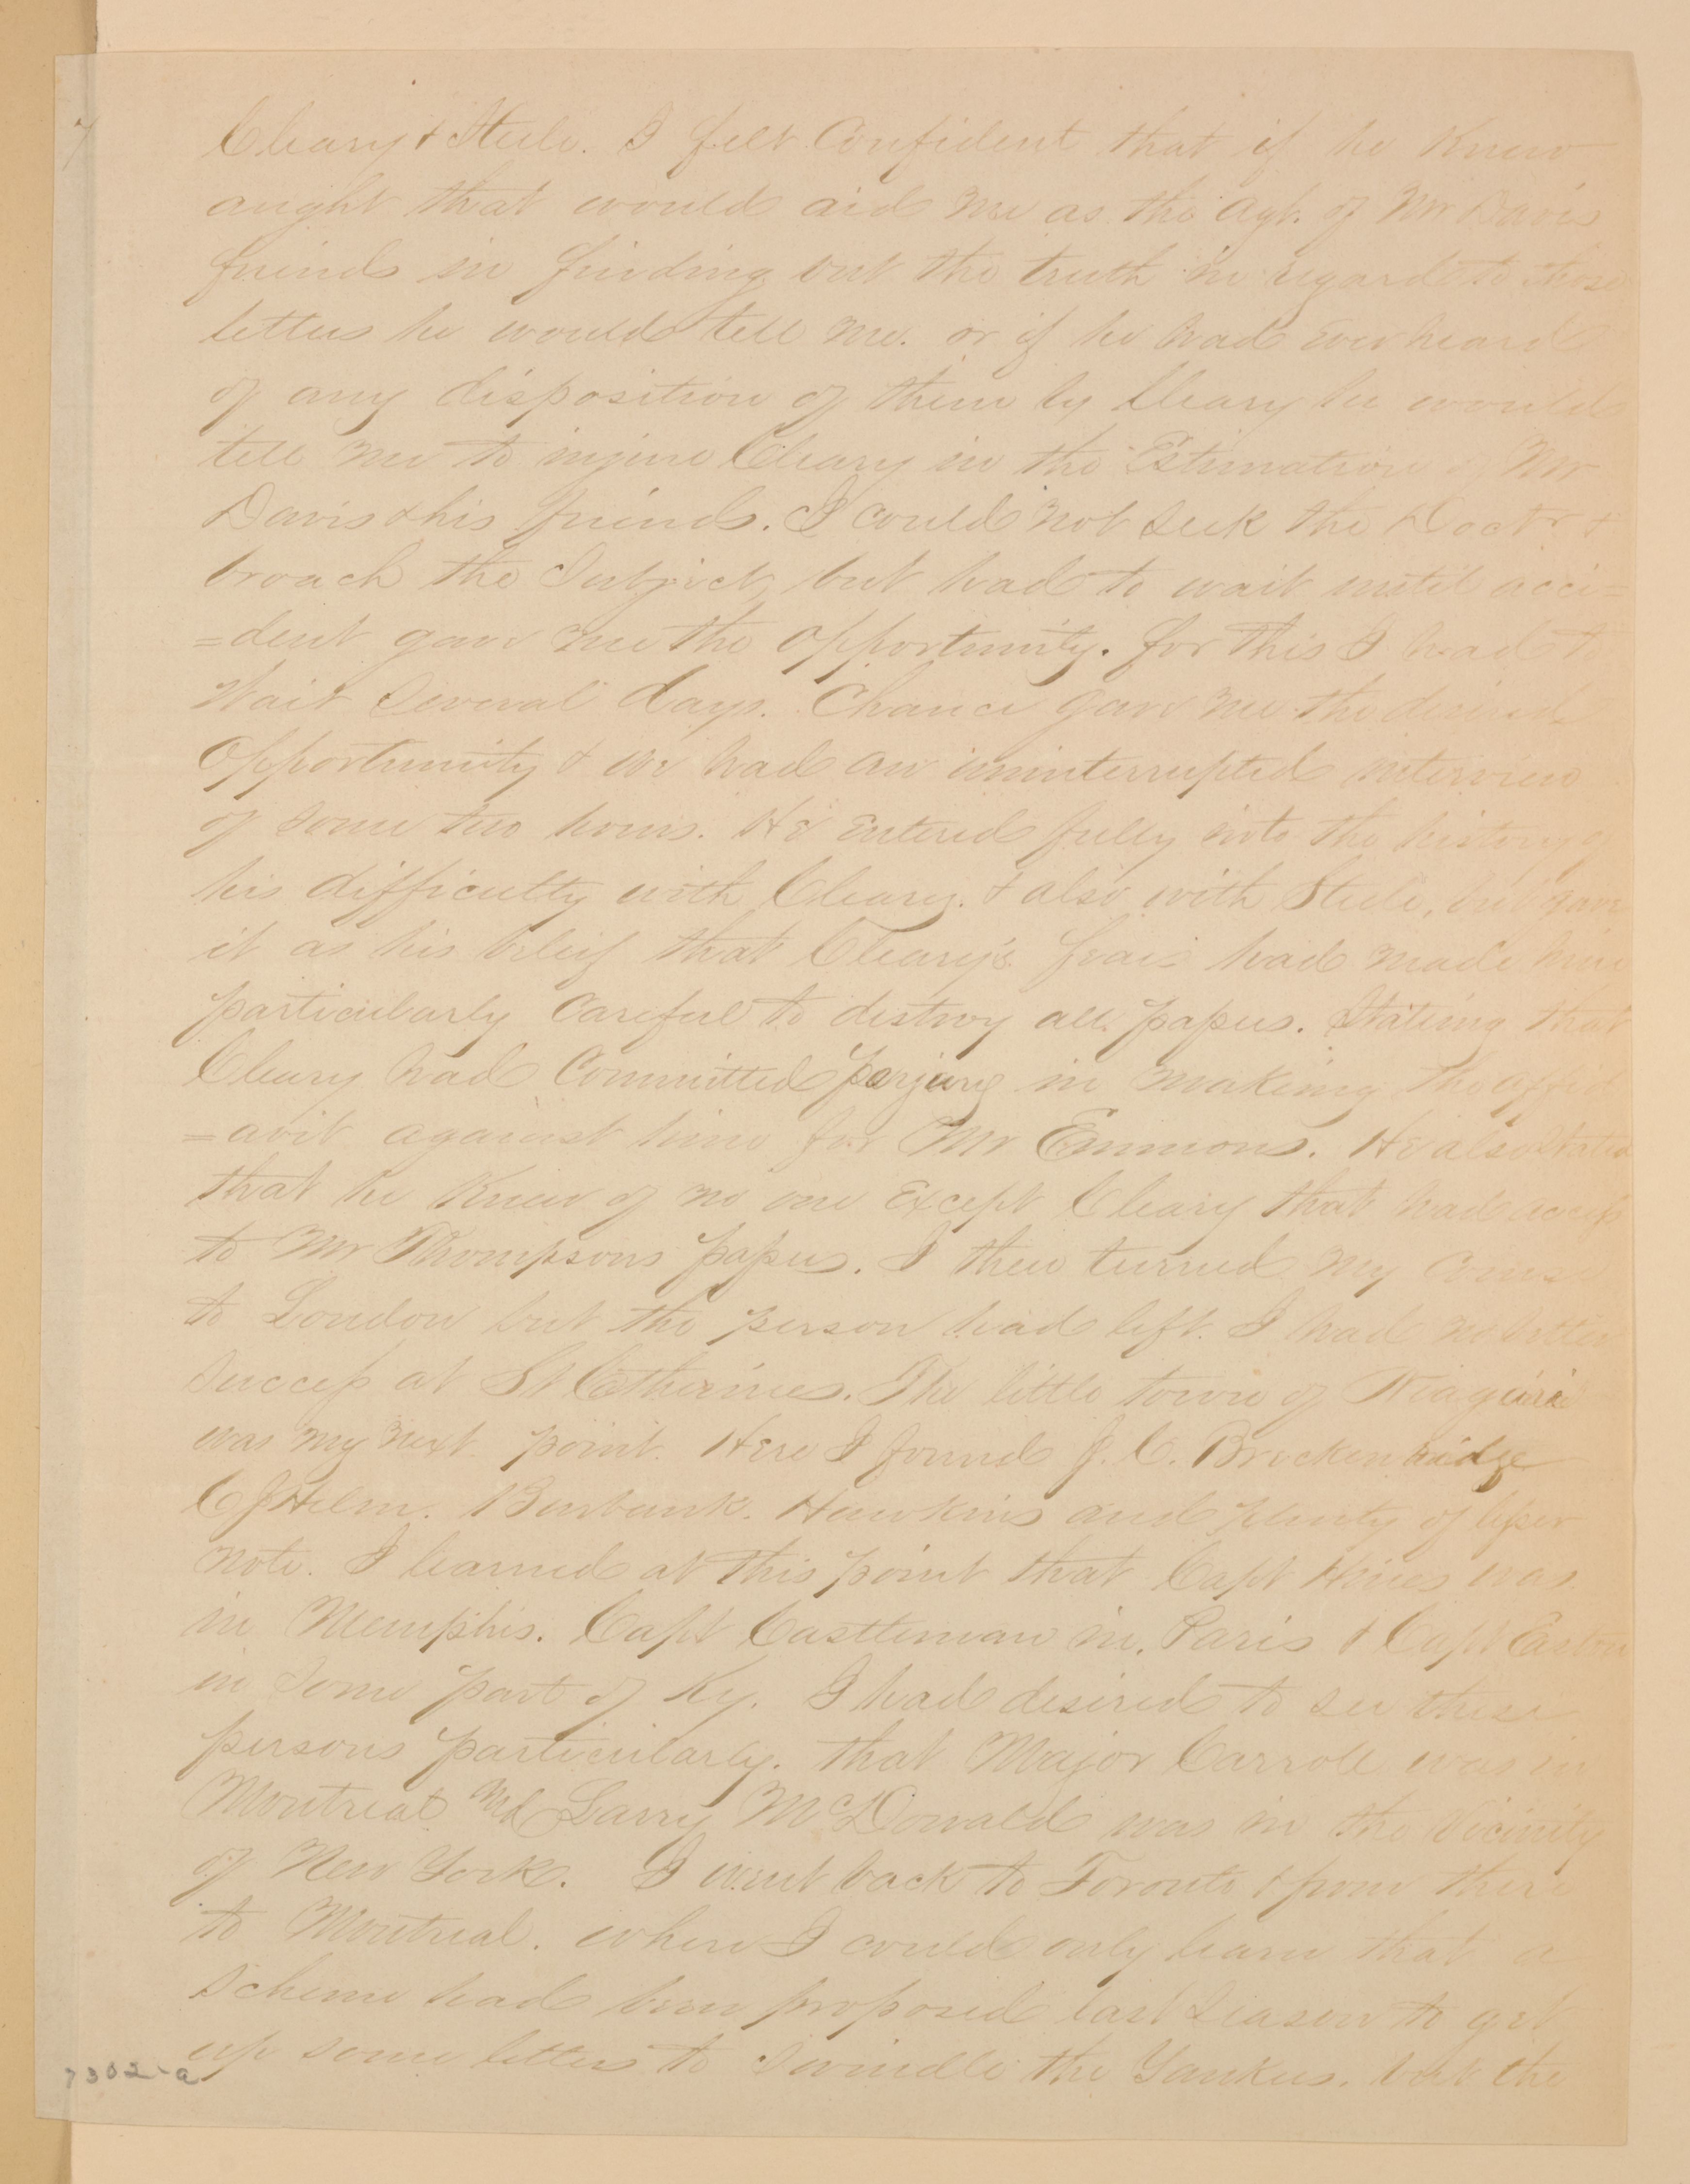 7
Cleary & Steele. I felt Confident that if he Knew
aught that would aid me as the Agt. of Mr Davis
friends in finding out the truth in regard to those
letters he would tell me. or if he had ever heard
of any disposition of them by Cleary he would
tell me to injure Cleary in the Estimation of Mr
Davis & his friends. I could not seek the Doctr &
broach the Subject, but had to wait until acci=
=dent gave me the opportunity. for this I had to
Wait Several days. Chance gave me the desired
Opportunity & we had an uninterrupted interview
of some two hours. He entered fully into the history of
his difficulty with Cleary. & also with Steele, but gave
it as his beleif that Cleary's fears had made him
particularly Careful to destroy all papers. Stating that
Cleary had Committed perjury in making the affid
=avit against him for Mr Emmons. He also Stated
that he Knew of no one Except Cleary that had access
to Mr Thompsons papers. I then turned my Course
to London but the person had left. I had no better
Success at St Catherines. The little town of Niagara
was my next point. Here I found J. C. Breckenridge
C J Helm. Burbank. Hawkins and plenty of lesser
note. I learned at this point that Capt Hines was
in Memphis. Capt Castleman in Paris & Capt Easton
in Some part of Ky. I had desired to see these
persons particularly. that Major Carroll was in
Montreal Larry McDonald was in the Vicinity
of New York. I went back to Toronto & from there
to Montreal. where I could only learn that a
Scheme had been proposed last Season to get
up some letters to Swindle the Yankees. but the
7302-a